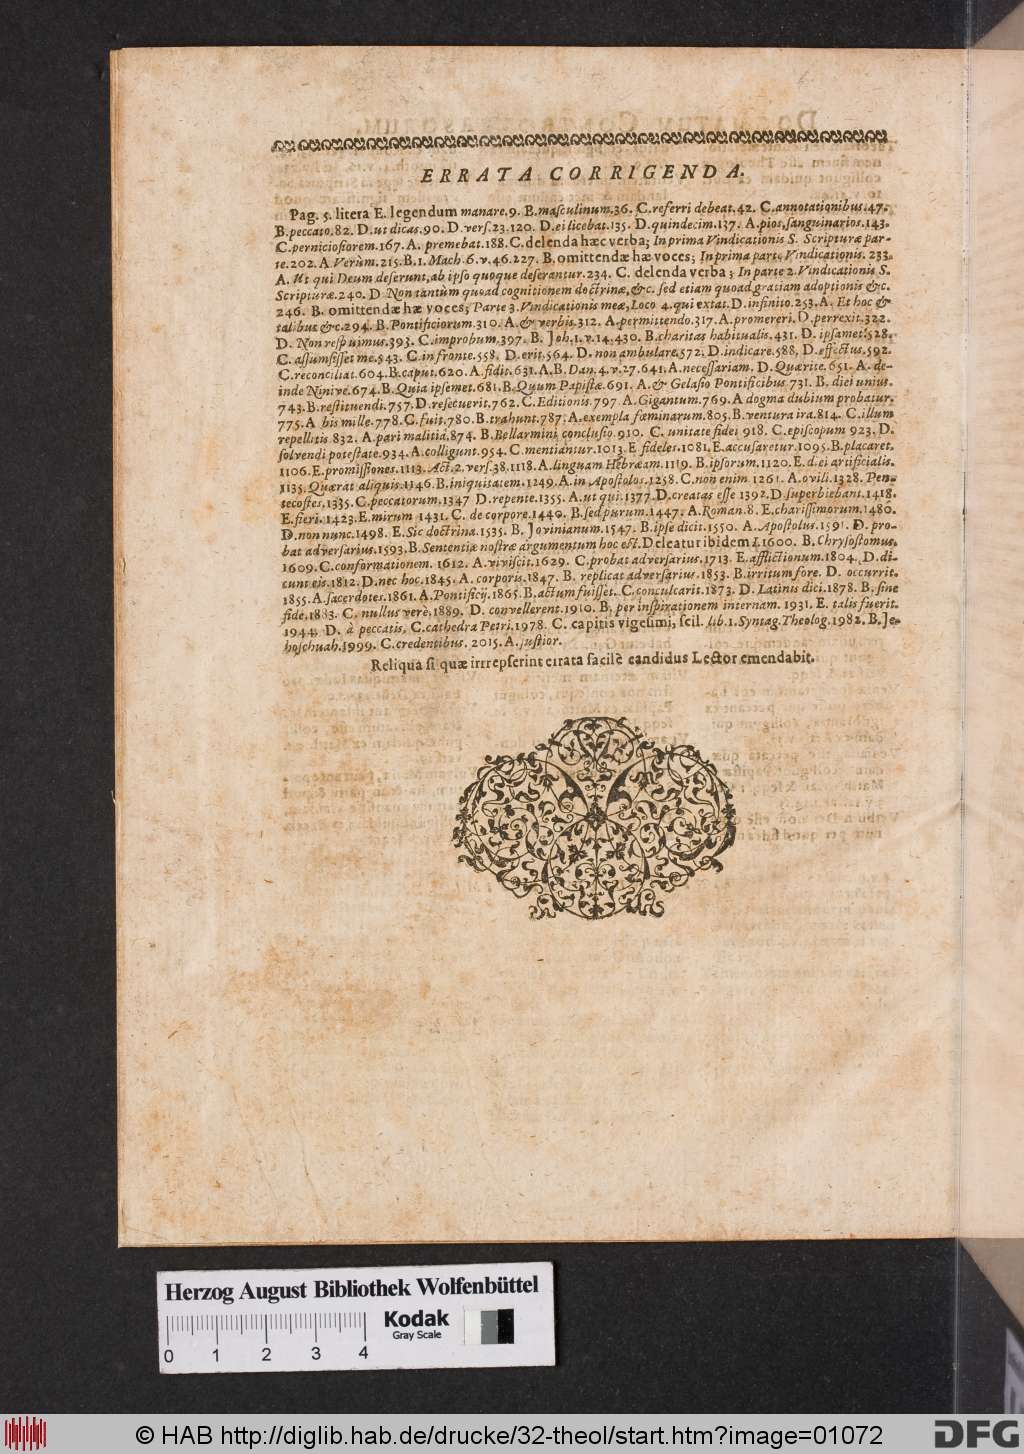 ERRATA CORRIGENDA.
Pag. 5. litera E. legendum manare. 9. B. masculinum. 36. C. referri debeat. 42. C. annotationibus. 47.
B. peccato. 82. D. ut dicas. 90. D. vers. 23. 120. D. ei licebat. 135. D. quindecim. 137. A. pios, sanguinarios. 143.
C. perniciosiorem. 167. A. premebat. 188. C. delenda hæc verba; In prima Vindicationis S. Scripturæ par-
te. 202. A. Verùm. 215. B. 1. Mach. 6. v. 46. 227. B. omittendæ hæ voces; In prima parte Vindicationis. 233.
A. Ut qui Deum deserunt, ab ipso quoque deserantur. 234. C. delenda verba; In parte 2. Vindicationis S.
Scripturæ. 240. D Non tantùm quoad cognitionem doctrinæ, &c. sed etiam quoad gratiam adoptionis &c.
246. B. omittendæ hæ voces; Parte 3. Vindicationis meæ, Loco 4. qui extat. D. infinito. 253. A. Et hoc &
talibus &c. 294. B. Pontificiorum. 310. A. & verbis. 312. A. permittendo. 317. A. promereri. D. perrexit. 322.
D. Non respuimus. 393. C. improbum. 397. B. Joh. 1. v. 14. 430. B. charitas habitualis. 431. D. ipsamet. 528.
C. assumsisset me. 543. C. in fronte. 558. D. erit. 564. D. non ambulare. 572. D. indicare. 588, D. effectus. 592.
C. reconciliat. 604. B. caput. 620. A. fidit. 631. A. B. Dan. 4. v. 27. 641. A. necessariam, D. Quærite. 651. A. de-
inde Ninive. 674. B. Quia ipsemet. 681. B. Quum Papistæ. 691. A. & Gelasio Pontificibus 731. B. diei unius.
743. B. restituendi. 757. D. resecuerit. 762. C. Editionis. 797 A. Gigantum. 769. A dogma dubium probatur.
775. A bis mille. 778. C. fuit. 780. B. trahunt. 787. A. exempla fœminarum. 805. B. ventura ira. 814. C. illum
repellitis 832. A. pari malitiâ. 874. B. Bellarmini conclusio. 910. C. unitate fidei 918. C. episcopum 923. D.
solvendi potestate. 934. A. colligunt. 954. C. mentiantur. 1013. E fideles. 1081. E. accusaretur. 1095. B. placaret.
1106. E. promissiones. 1113. Act. 2. vers. 38. 1118. A. linguam Hebræam. 1119. B. ipsorum. 1120. E. dei artificialis.
1135. Quærat aliquis. 1146. B. iniquitatem. 1249. A. in Apostolos. 1258. C. non enim 1261. A. ovili. 1328. Pen-
tecostes. 1335. C. peccatorum. 1347 D. repente. 1355. A. ut qui. 1377. D. creatas esse 1392. D. superbiebant. 1418.
E. fieri. 1423. E. mirum 1431. C. de corpore. 1440. B. sed purum. 1447. A. Roman. 8. E. charissimorum. 1480.
D. non nunc. 1498. E. Sic doctrina. 1535. B. Jovinianum. 1547. B. ipse dicit. 1550. A. Apostolus. 1591. D. pro-
bat adversarius. 1593. B. Sententiæ nostræ argumentum hoc est. Deleatur ibidem 1. 1600. B. Chrysostomus.
1609. C. conformationem. 1612. A. viviscit. 1629. C. probat adversarius. 1713. E. afflictionum. 1804. D. di-
cunt eis. 1812. D. nec hoc. 1845. A. corporis. 1847. B. replicat adversarius. 1853. B. irritum fore. D. occurrit.
1855. A. sacerdotes. 1861. A. Pontificij. 1865. B. actum fuisset. C. conculcarit. 1873. D. Latinis dici. 1878. B. sine
fide. 1883. C. nullus verè. 1889. D. convellerent. 1910. B. per inspirationem internam. 1931. E. talis fuerit.
1944. D. à peccatis, C. cathedra Petri. 1978. C. capitis vigesimi, scil. lib. 1. Syntag. Theolog. 1982. B. Je-
hoschuah. 1999. C. credentibus. 2015. A. justior.
Reliqua si quæ irrepserint errata facilè candidus Lector emendabit.
Herzog August Bibliothek Wolfenbüttel
Kodak
Gray Scale
0 1 2 3 4
© HAB http://diglib.hab.de/drucke/32-theol/start.htm?image=01072
DFG